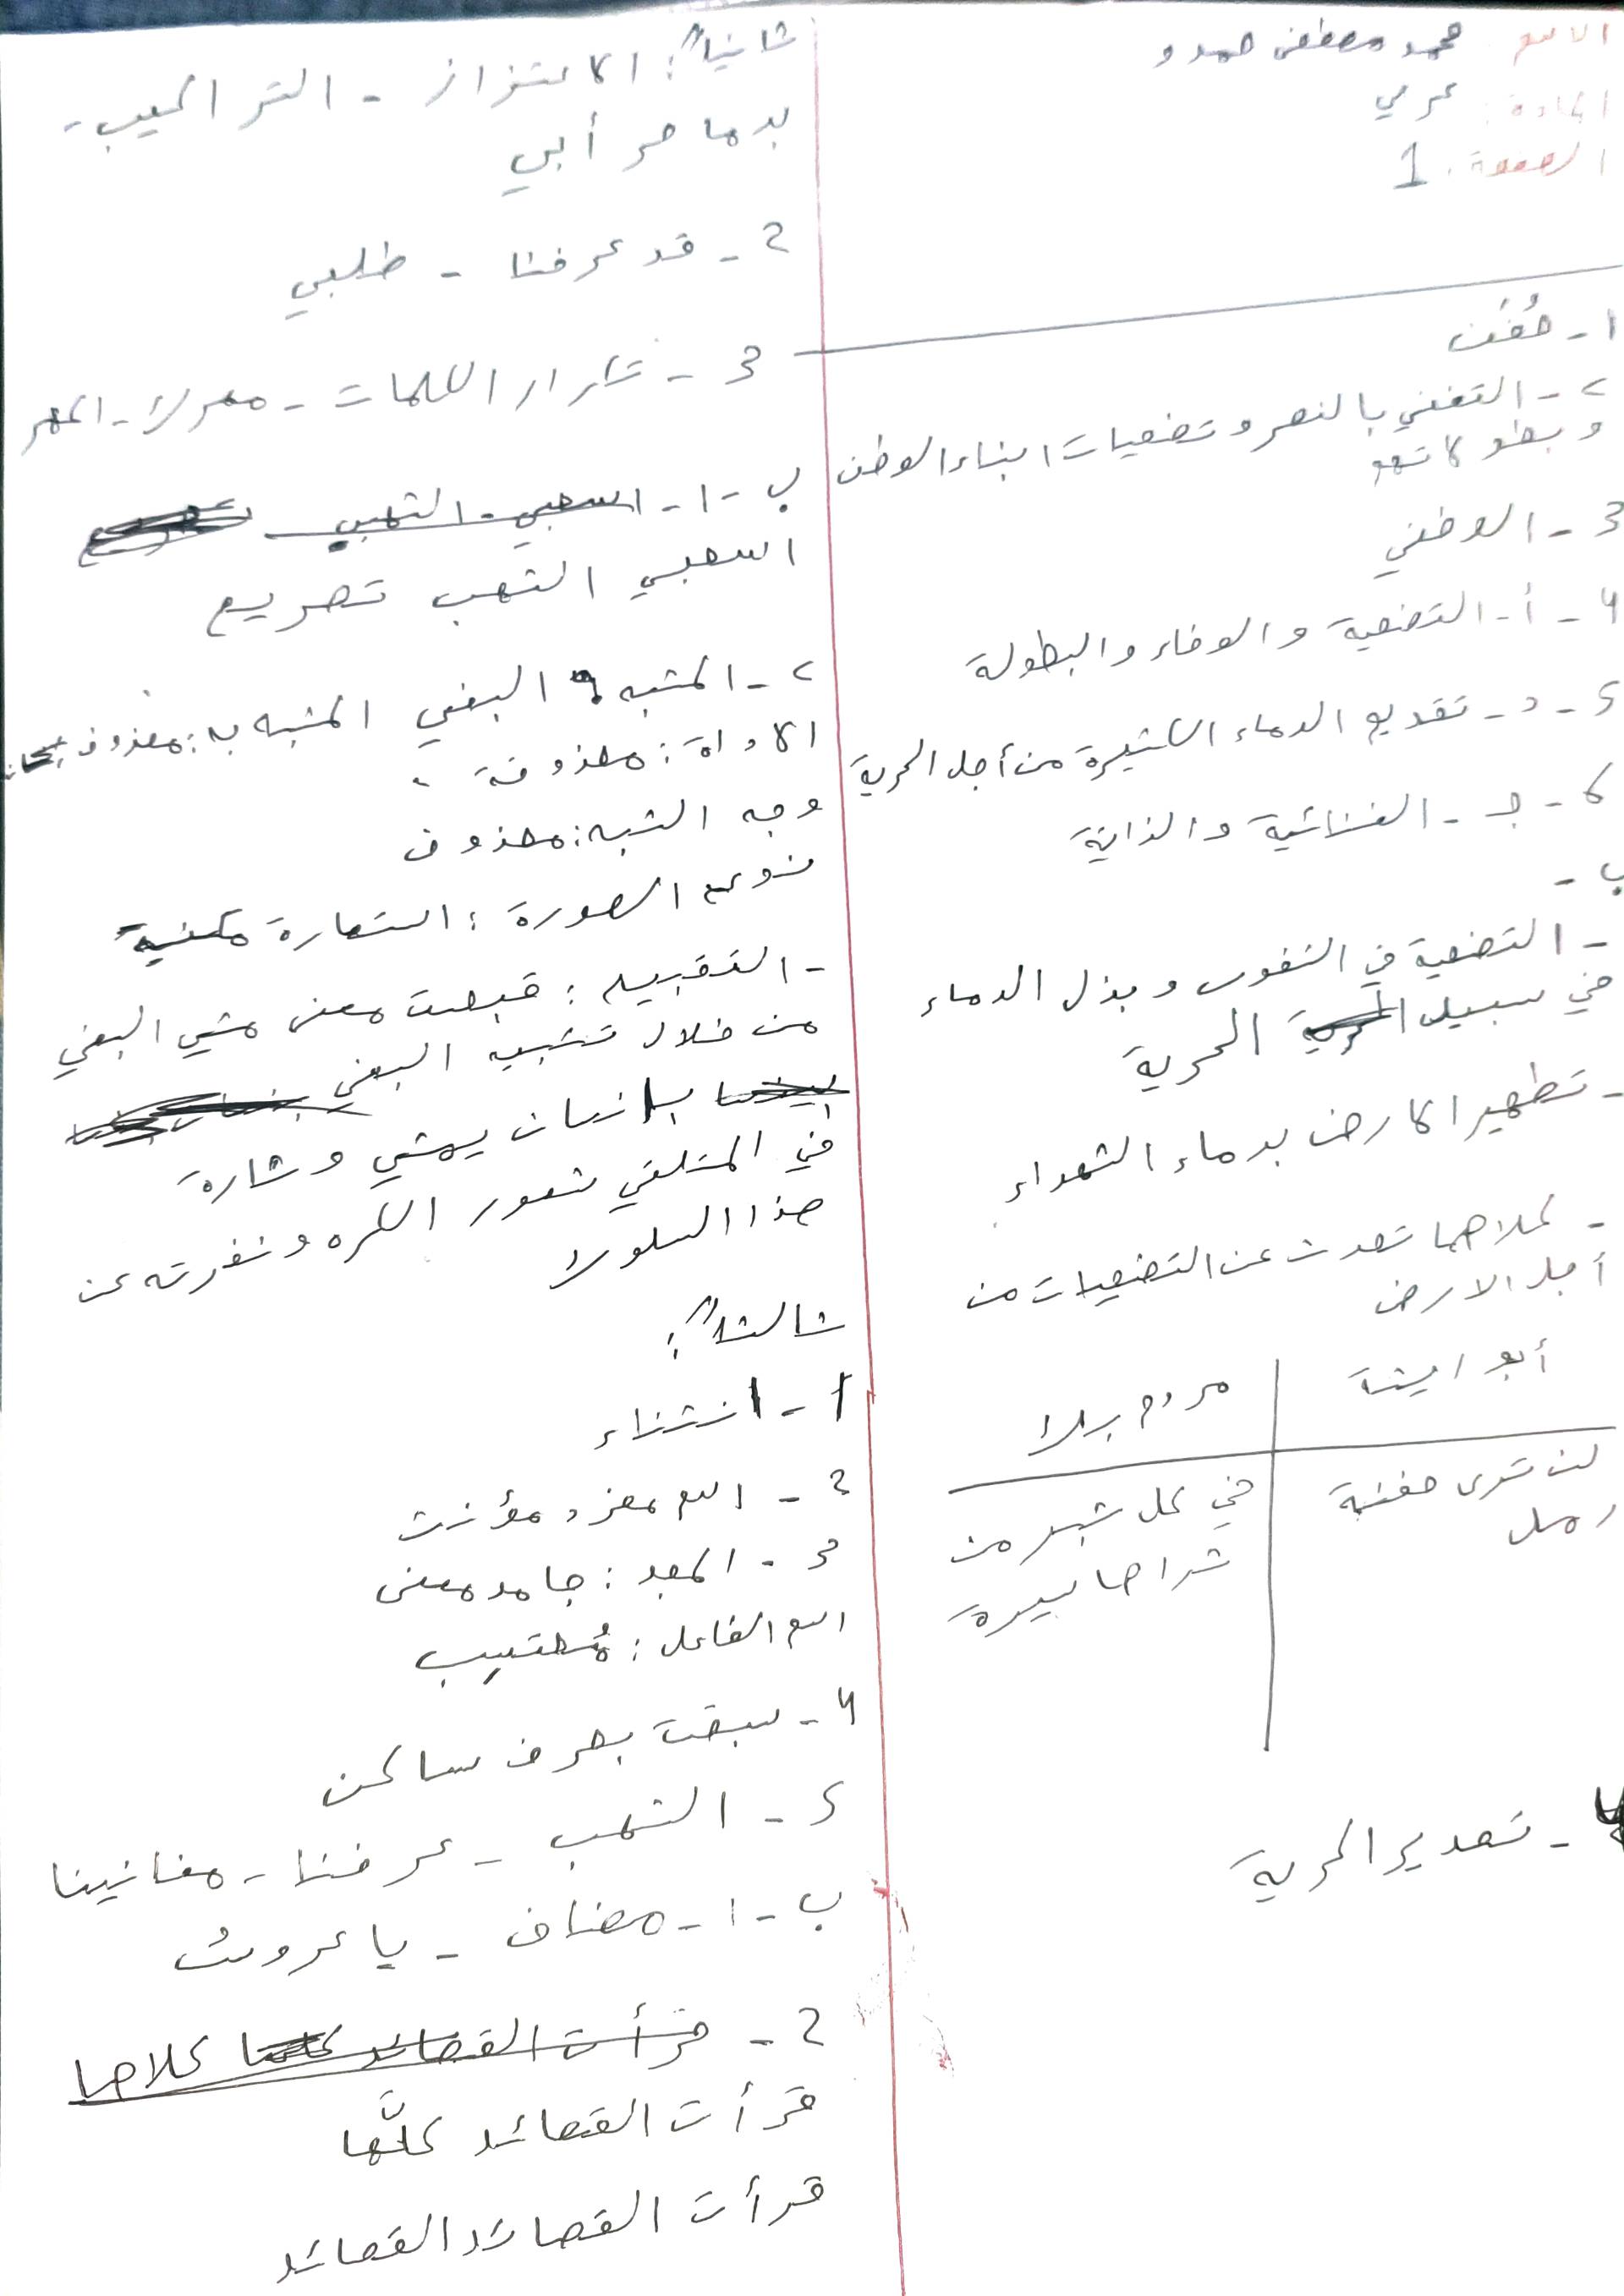 الاسم: محمد مصطفى حمدو
المادة: عربي
الصفحة: 1
1 - حُفَن
2 - التغني بالنصر و تضحيات ابناء الوطن
و بطولاتهم
3 - الوطني
4 - أ - التضحية و الوفاء و البطولة
5 - د - تقديم الدماء الكثيرة من أجل الحرية
6 - جـ - الغنائية و الذاتية
ب -
- التضحية في النفوس و بذل الدماء
في سبيل الحرية
- تطهير الارض بدماء الشهداء
- كلاهما تحدث عن التضحيات من
أجل الارض
أبو ريشة
مردم بك
لن ترى حفنة
رمل
في كل شبر من
ثراها
4 - تقدير الحرية
ثانياً: الاعتزاز - التراكيب -
بدماء حر أبي
2 - قد عرفنا - طلبي
3 - تكرار الكلمات - مهرك - المهر
ب - 1 - اسحبي - الشهب
اسحبي الشهب تصريع
2 - المشبه: البغي المشبه به: محذوف
الاداة: محذوفة
وجه الشبه: محذوف
نوع الصورة: استعارة مكنية
- التقبيح: قبحت معنى مشي البغي
من خلال تشبيه البغي
بإنسان يمشي و شارة
في المتلقي شعور الكره و نفرته عن
هذا السلوك
ثالثاً:
1 - انتناء
2 - اسم مفرد مؤنث
3 - المجد: جامد معنى
اسم الفاعل: مُحتسِب
4 - سبقت بحرف ساكن
5 - الشهب - عرفنا - مغانينا
ب - 1 - مضاف - يا عروسُ
2 - قرأت القصائد كلاها
قرأت القصائد كلَّها
قرأت القصائد القصائد